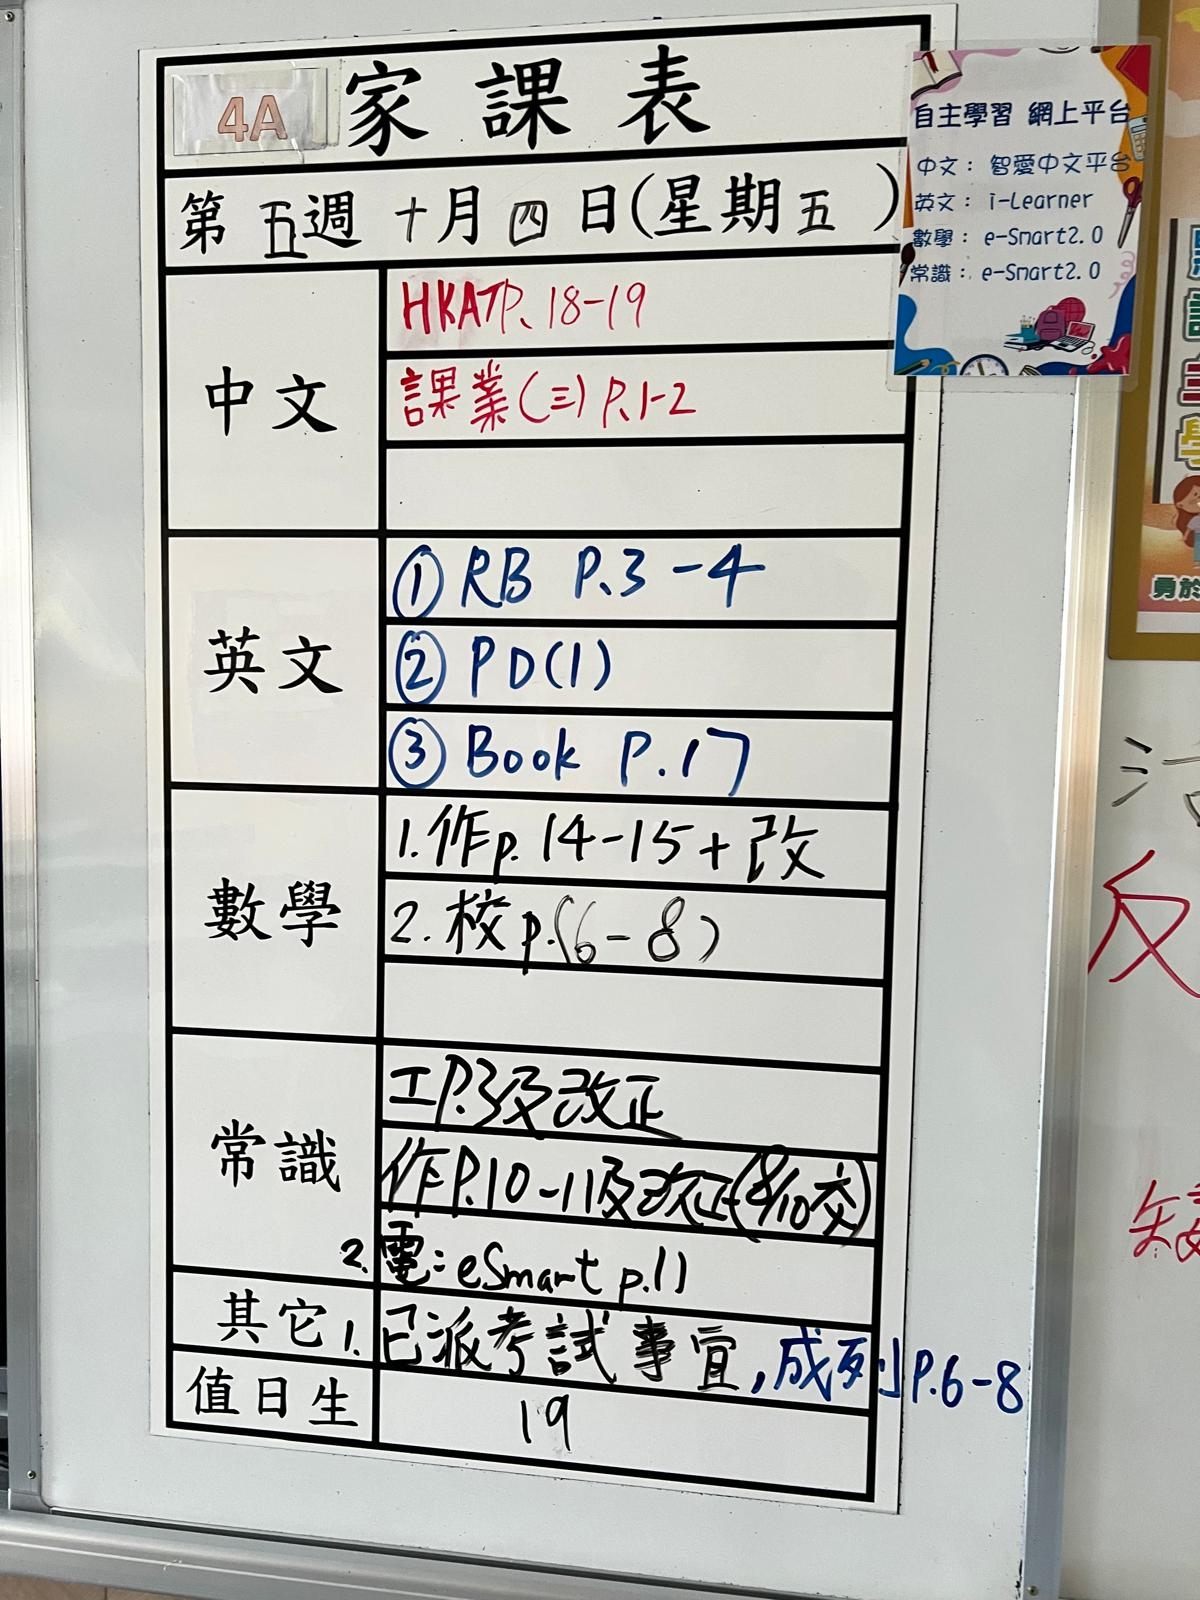 4A 家課表
第五週 十月四日(星期五)
中文
HKAT P. 18-19
課業(三) P.1-2
英文
① RB P.3-4
② PD(1)
③ Book P.17
數學
1.作p. 14-15+改
2.校p.(6-8)
常識
工P.3及改正
作P.10-11及改正(8/10交)
2.電：eSmart p.11
其它
1.已派考試事宜,成列P.6-8
值日生
19
自主學習 網上平台
中文： 智愛中文平台
英文： i-Learner
數學： e-Smart2.0
常識： e-Smart2.0
反
勇於